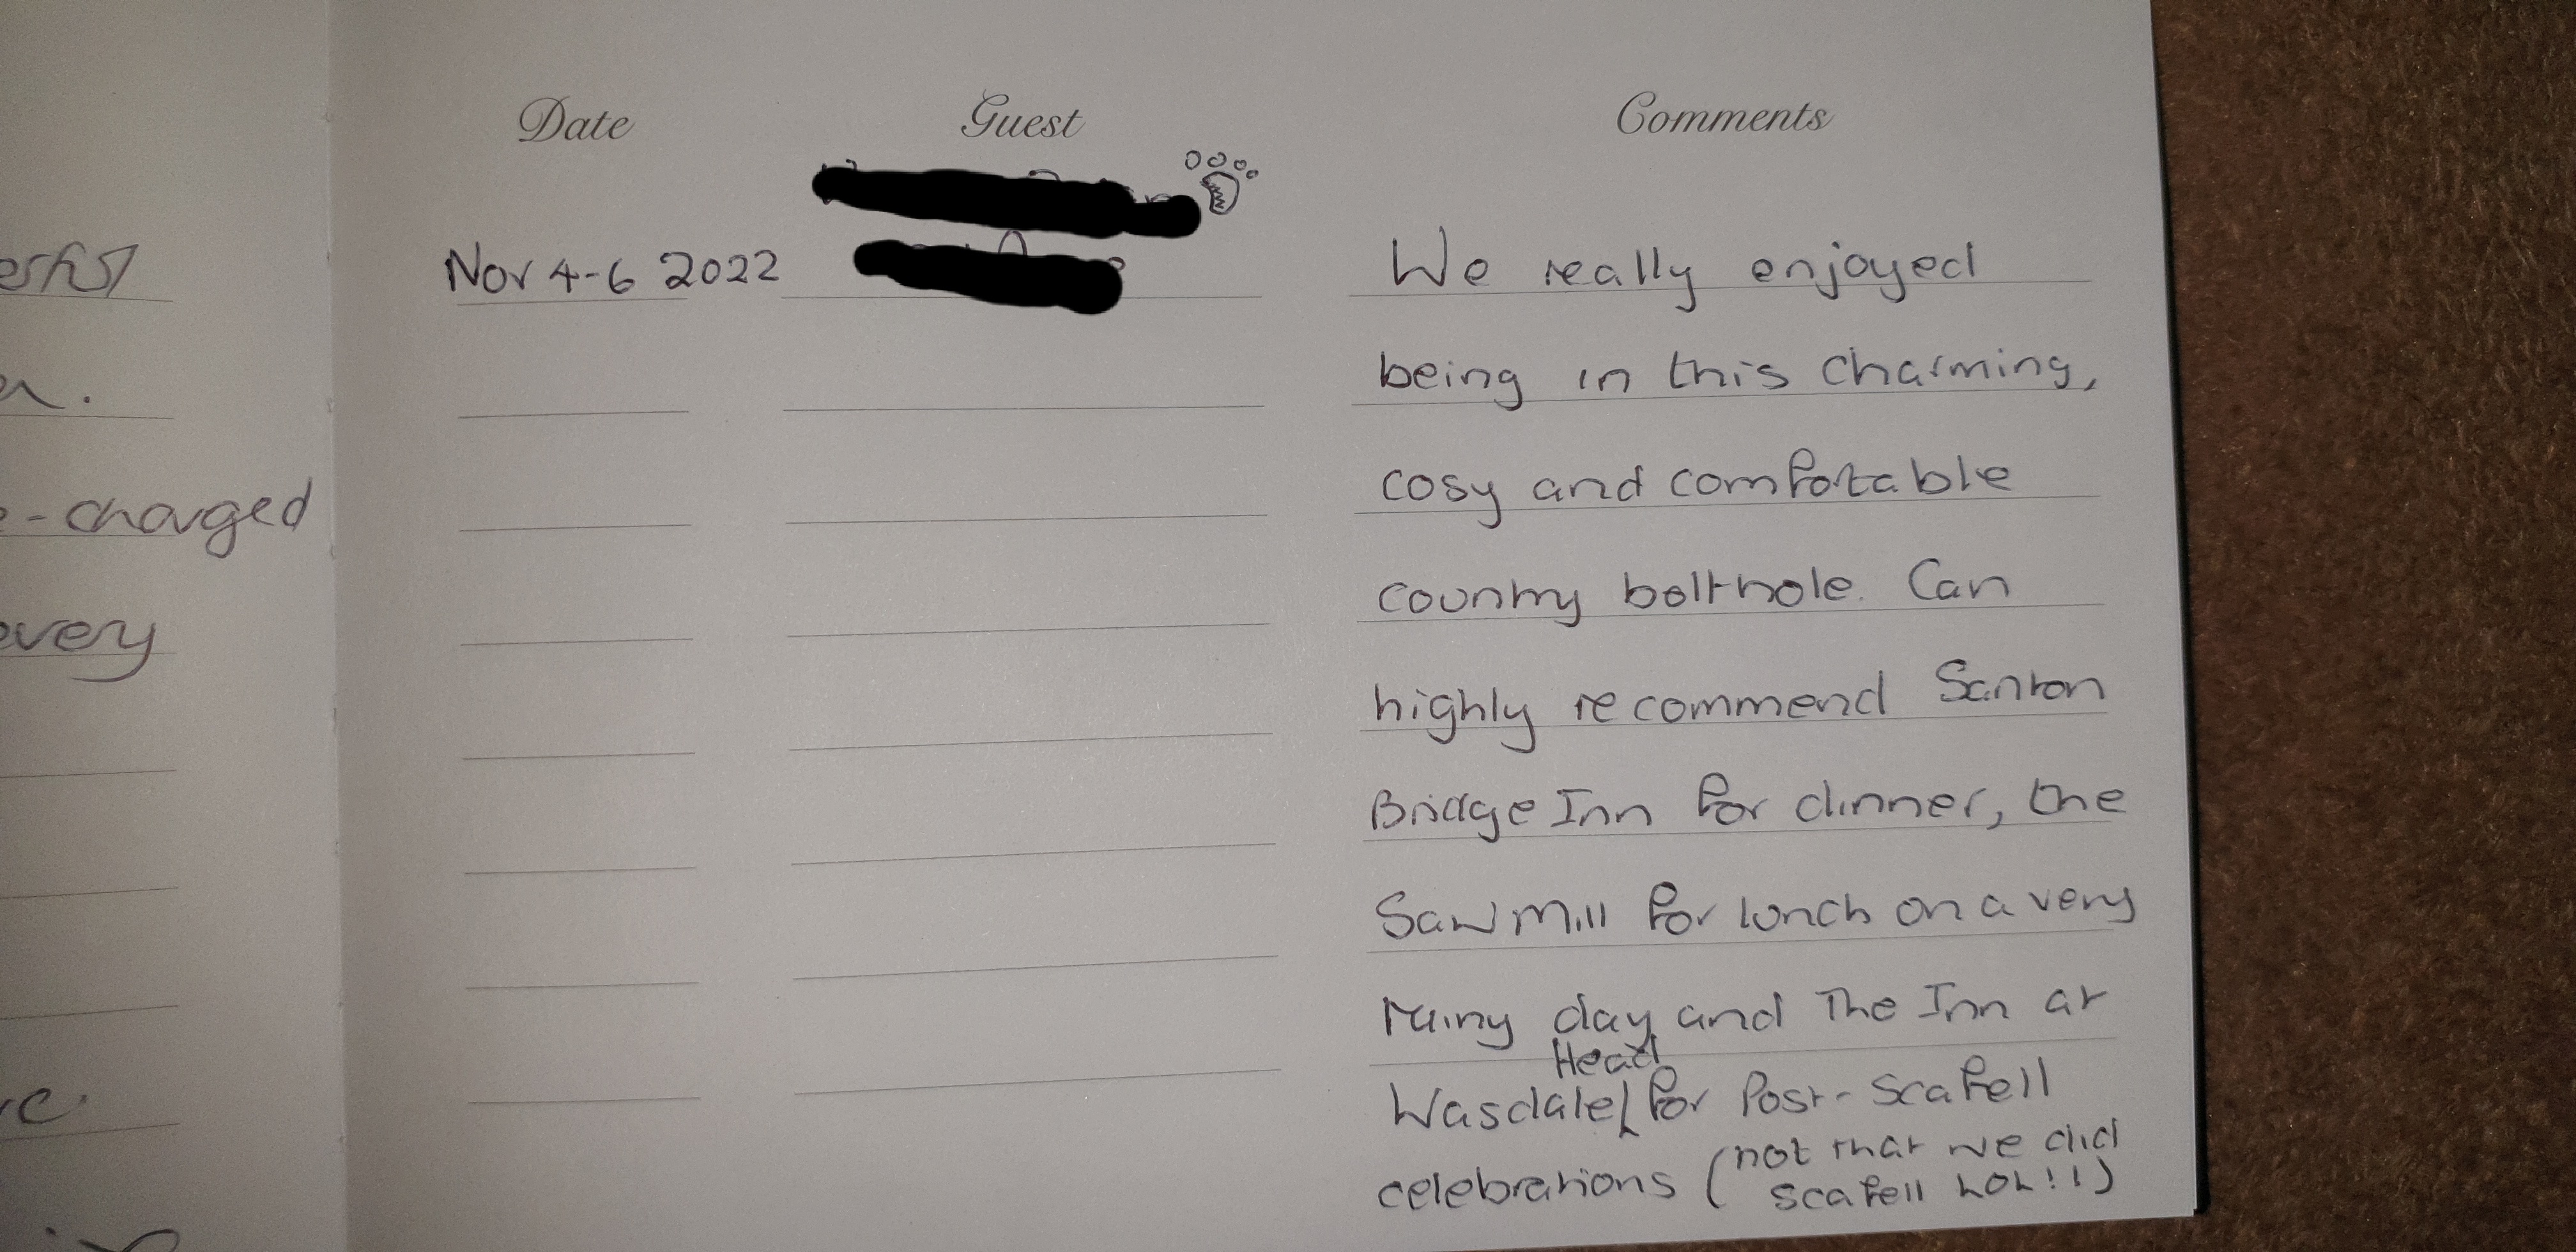 Date Guest Comments
Nov 4-6 2022
We really enjoyed
being in this charming,
cosy and comfortable
country bolthole. Can
highly recommend Santon
Bridge Inn for dinner, the
Sawmill for lunch on a very
rainy day and The Inn at
Head
Wasdale for Post-Scafell
celebrations (not that we did
Scafell LOL!!)
- charged
very